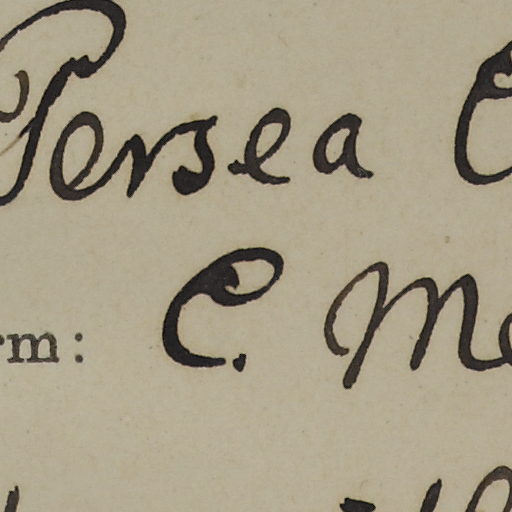 Persea
rm: C. M